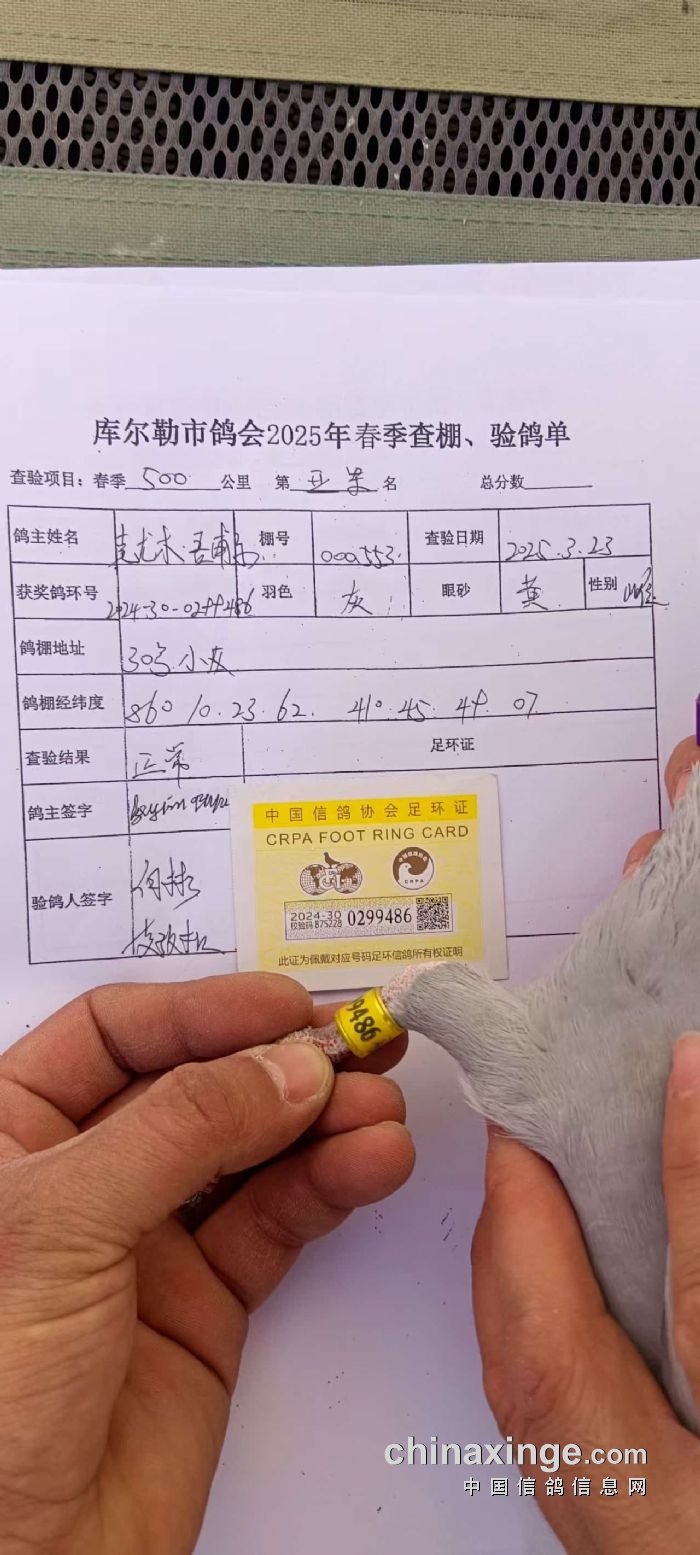 库尔勒市鸽会2025年春季查棚、验鸽单
查验项目：春季 500 公里 第 亚军 名 总分数
鸽主姓名 棚号 000553 查验日期 2025.3.23
获奖鸽环号 2024-30-0299486 羽色 灰 眼砂 黄 性别 雌
鸽棚地址 30号小区
鸽棚经纬度 86° 10. 23. 62. 41°. 45. 49. 07
查验结果 正常 足环证
鸽主签字
验鸽人签字
中国信鸽协会足环证
CRPA FOOT RING CARD
CRPA
2024-30 0299486
校验码 875228
此证为佩戴对应号码足环信鸽所有权证明
99486
chinaxinge.com
中国信鸽信息网